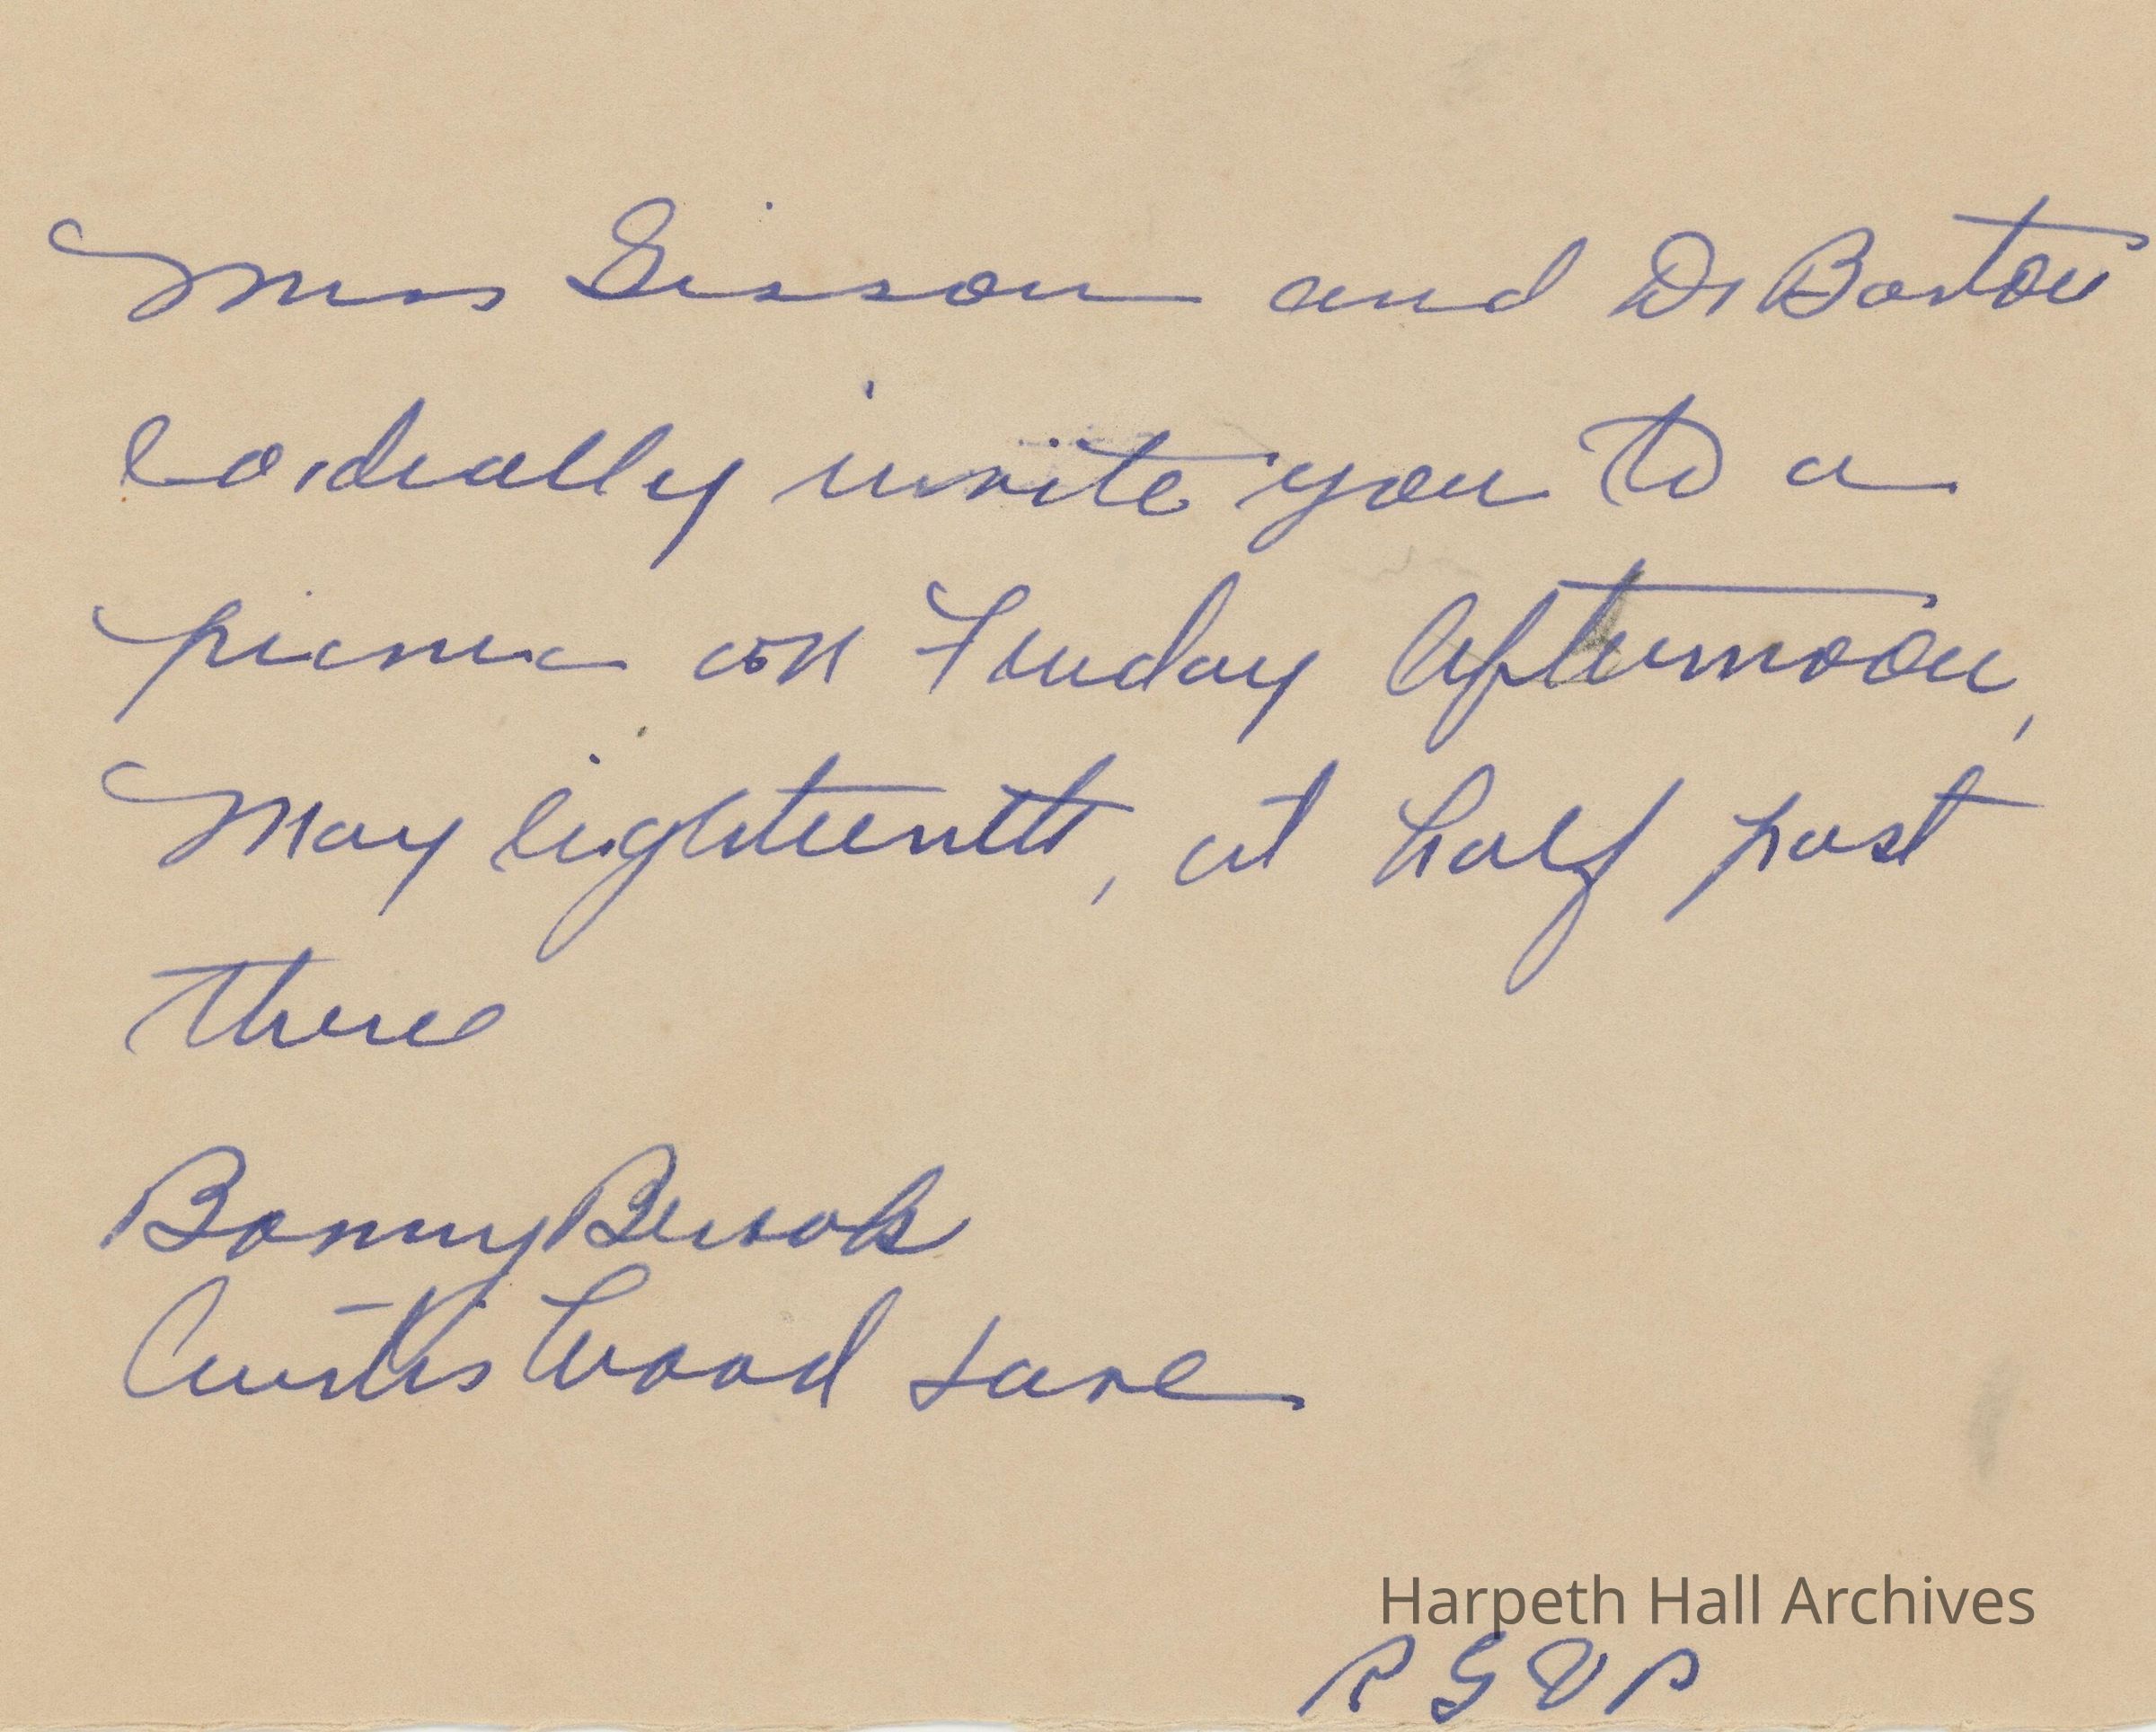 Miss Sisson and Dr Barton
Cordially invite you to a
picnic on Friday Afternoon,
May eighteenth, at half past
three
Bonny Brook
Curtis Wood Lane
Harpeth Hall Archives
RSVP